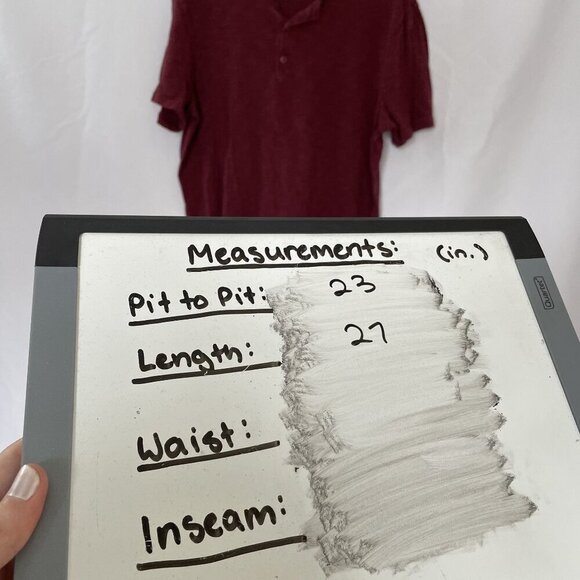 Measurements: (in.)
Pit to Pit: 23
Length: 27
Waist:
Inseam:
Quartet